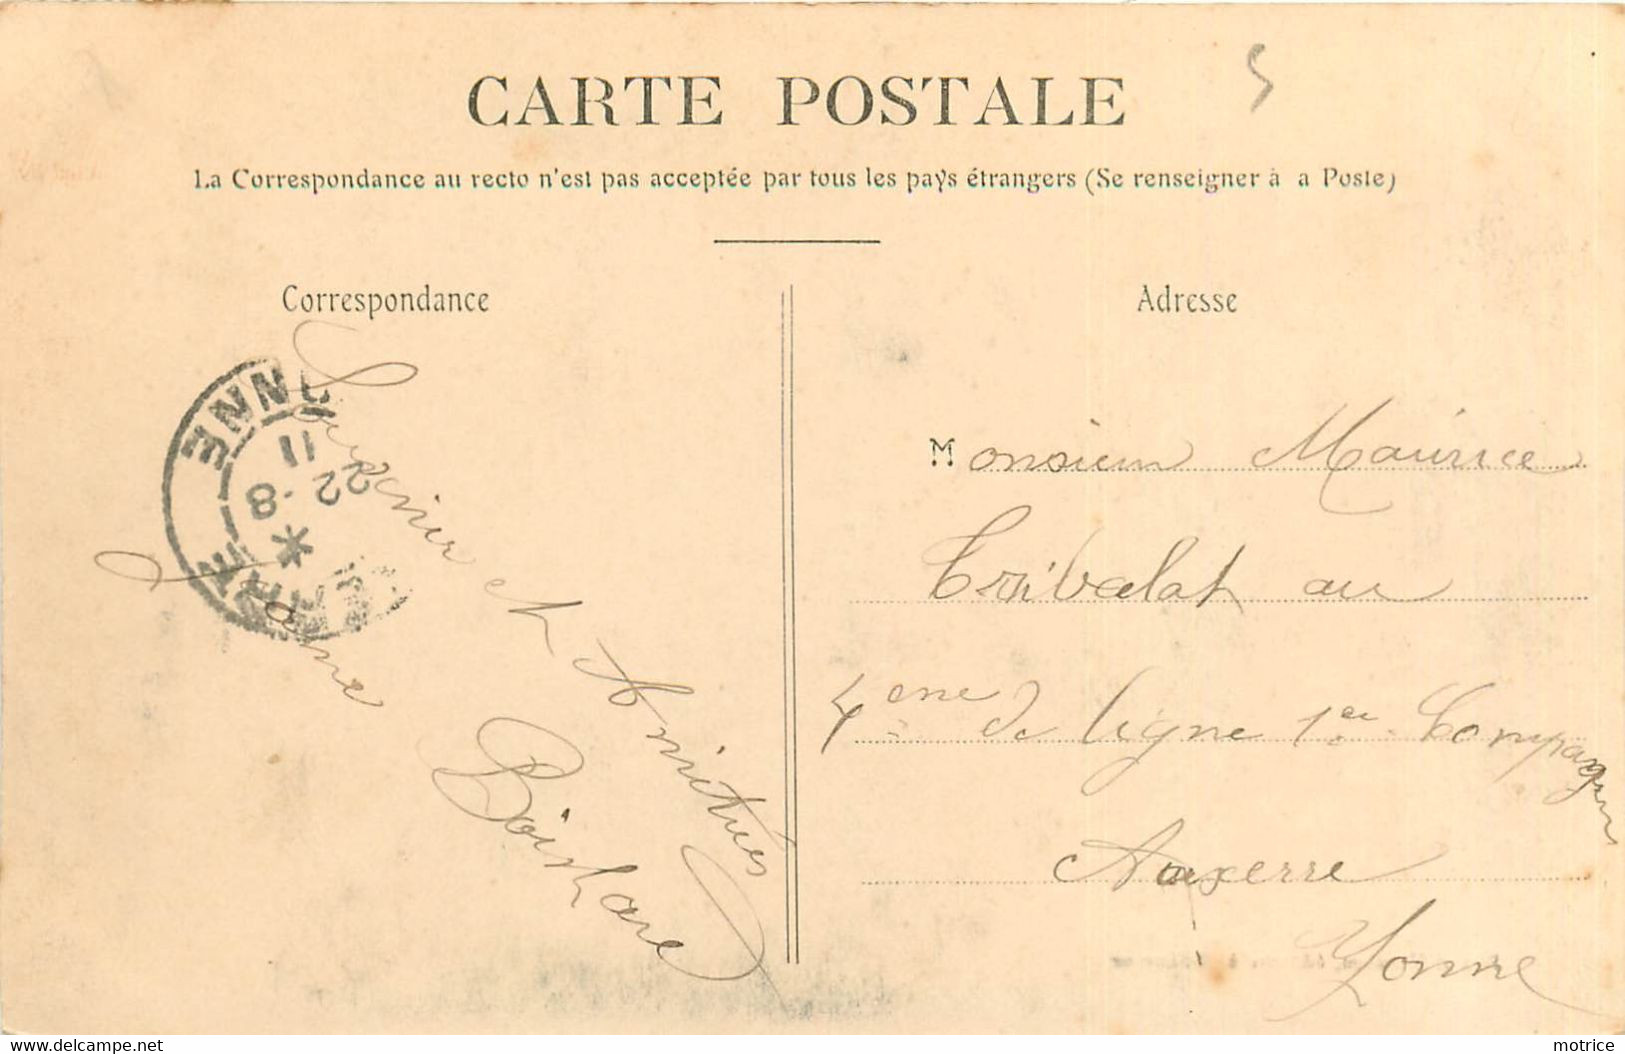 CARTE POSTALE
5
La Correspondance au recto n'est pas acceptée par tous les pays étrangers (Se renseigner à a Poste)
Correspondance
Souvenir et Amitiés
Jeanne
YONNE
11
22 - 8
*
Adresse
Monsieur Maurice
Tribalat au
4eme de ligne 1ere Compagnie
Auxerre
Yonne
https://www.delcampe.net
motrice